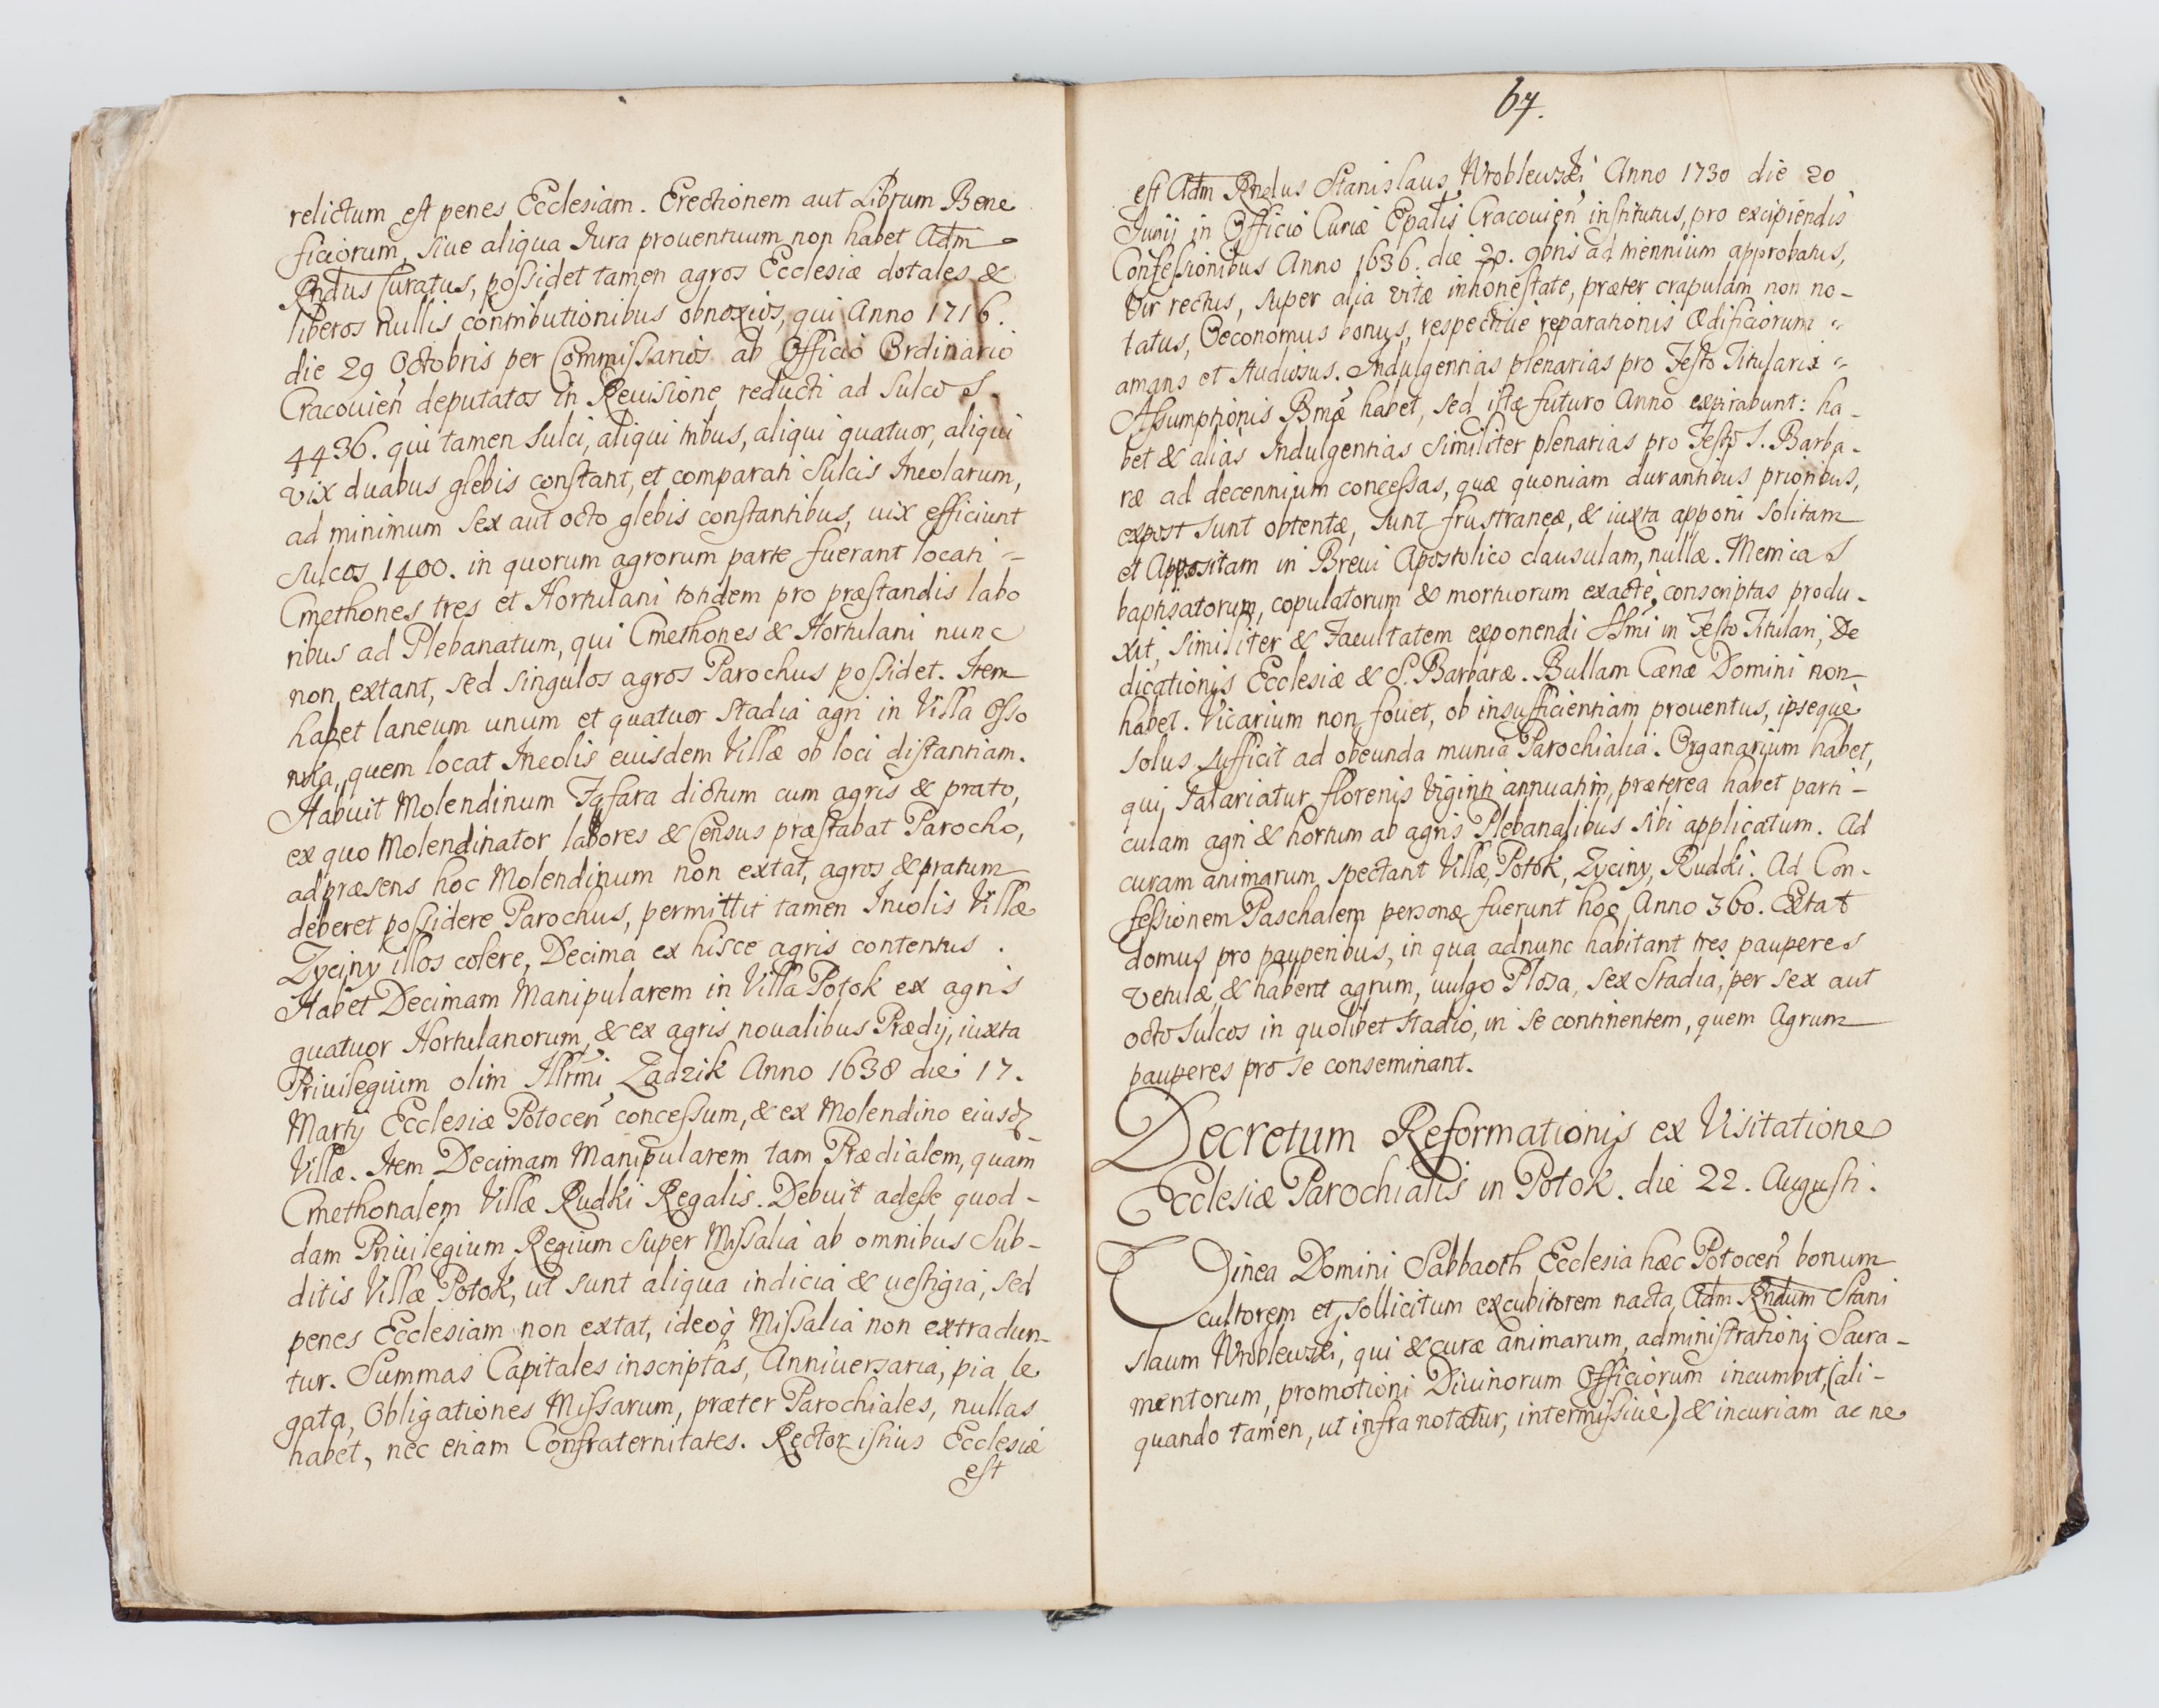 relictum est penes Ecclesiam. Erectionem aut Librum Bene
ficiorum, siue aliqua Jura prouentuum non habet Adm
Rndus Curatus, possidet tamen agros Ecclesiæ dotales &
liberos nullis contributionibus obnoxios, qui Anno 1716.
die 29 Octobris per Commissarios ab Officio Ordinario
Cracouien deputatos in Reuisione reducti ad sulcos
4436. qui tamen sulci, aliqui tribus, aliqui quatuor, aliqui
vix duabus glebis constant, et comparati sulcis Incolarum,
ad minimum sex aut octo glebis constantibus, uix efficiunt
sulcos 1400. in quorum agrorum parte fuerant locati =
Cmethones tres et Hortulani totidem pro præstandis labo
ribus ad Plebanatum, qui Cmethones & Hortulani nunc
non extant, sed singulos agros Parochus possidet. Item
habet laneum unum et quatuor stadia agri in Villa Osso
wka, quem locat Incolis euisdem Villæ ob loci distantiam.
Habuit Molendinum Fafara dictum cum agris & prato,
ex quo Molendinator labores & Census præstabat Parocho,
ad præsens hoc Molendinum non extat, agros & pratum
deberet possidere Parochus, permittit tamen Incolis Villæ
Zyciny illos colere, Decima ex hisce agris contentus.
Habet Decimam Manipularem in Villa Potok ex agris
quatuor Hortulanorum, & ex agris noualibus Prædij, iuxta
Priuilegium olim Illrmi Zadzik Anno 1638 die 17.
Martij Ecclesiæ Potocen concessum, & ex Molendino eiusd
Villæ. Item Decimam Manipularem tam Prædialem, quam
Cmethonalem Villæ Rudki Regalis. Debuit adesse quod-
dam Priuilegium Regium super Missalia ab omnibus Sub-
ditis Villæ Potok, ut sunt aliqua indicia & uestigia, sed
penes Ecclesiam non extat, ideoq Missalia non extradun-
tur. Summas Capitales inscriptas, Anniuersaria, pia le
gata, Obligationes Missarum, præter Parochiales, nullas
habet, nec etiam Confraternitates. Rector istius Ecclesiæ
est
67.
est Adm Rndus Stanislaus Wroblewski Anno 1730 die 20
Junij in Officio Curiæ Epalis Cracouien institutus, pro excipiendis
Confessionibus Anno 1636. die 20. 9bris ad triennium approbatus,
Vir rectus, super alia vitæ inhonestate, præter crapulam non no-
tatus, Oeconomus bonus, respectiue reparationis Ædificiorum =
amans et studiosus. Indulgentias plenarias pro Festo Titularis =
Assumptionis Bmæ habet, sed istæ futuro Anno expirabunt: ha-
bet & alias Indulgentias similiter plenarias pro Festo S. Barba-
ræ ad decennium concessas, quæ quoniam durantibus prioribus,
expost sunt obtentæ, sunt frustraneæ, & iuxta apponi solitam
et Appositam in Breui Apostolico clausulam, nullæ. Metricas
baptisatorum, copulatorum & mortuorum exacte conscriptas produ-
xit, similiter & Facultatem exponendi SSmi in Festo Titulari, De
dicationis Ecclesiæ & S. Barbaræ. Bullam Cænæ Domini non
habet. Vicarium non fouet, ob insufficientiam prouentus, ipseque
solus sufficit ad obeunda munia Parochialia. Organarium habet,
qui salariatur florenis Viginti annuatim, præterea habet parti-
culam agri & hortum ab agris Plebanalibus sibi applicatum. Ad
curam animarum spectant Villæ, Potok, Zyciny, Rudki. Ad Con-
fessionem Paschalem personæ fuerunt hoc Anno 360. Extat
domus pro pauperibus, in qua adnunc habitant tres pauperes
Vetulæ, & habent agrum, uulgo Plosa, sex stadia, per sex aut
octo sulcos in quolibet stadio, in se continentem, quem Agrum
pauperes pro se conseminant.
Decretum Reformationis ex Visitatione
Ecclesiæ Parochialis in Potok. die 22. Augusti.
Vinea Domini Sabbaoth Ecclesia hæc Potocen bonum
cultorem et sollicitum excubitorem nacta Adm Rndum Stani
slaum Wroblewski, qui & curæ animarum, administrationi Sacra-
mentorum, promotioni Diuinorum Officiorum incumbit, (ali-
quando tamen, ut infra notatur, intermissiue) & incuriam ac ne